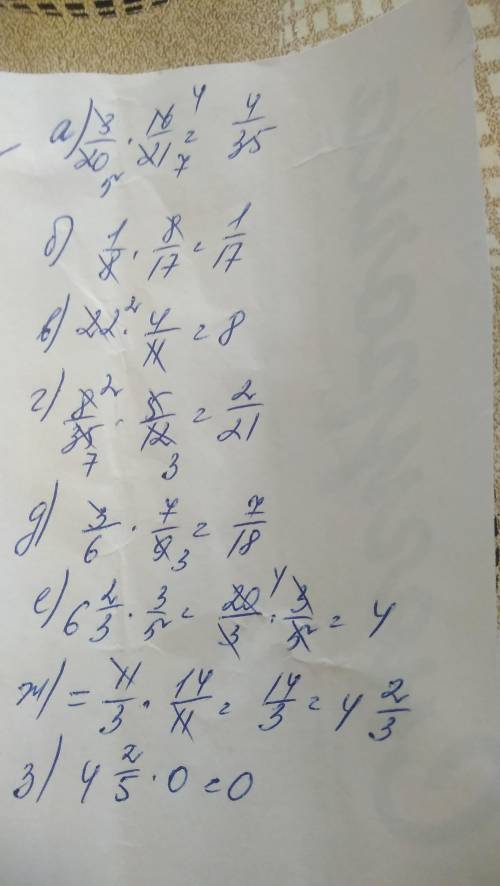 а) 3/20 · 16/21 = 4/35
5 7 4
б) 1/8 · 8/17 = 1/17
в) 22 · 4/11 = 8
2
г) 8/35 · 5/12 = 2/21
2 7 3
д) 3/6 · 7/9 = 7/18
3
е) 6 2/3 · 3/5 = 20/3 · 3/5 = 4
4
ж) = 11/3 · 14/11 = 14/3 = 4 2/3
з) 4 2/5 · 0 = 0